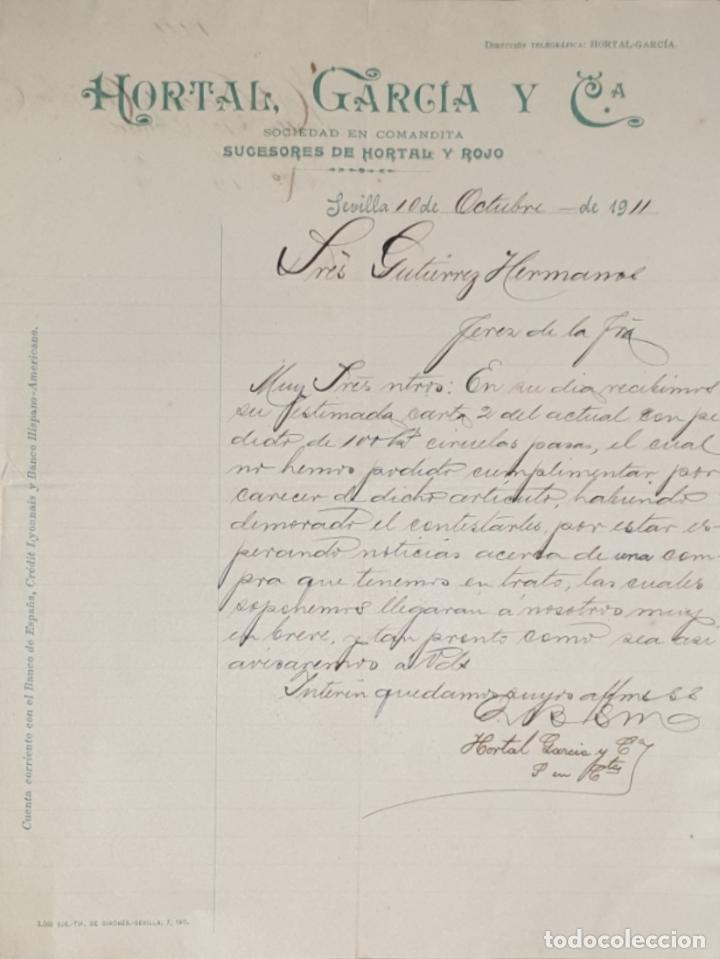 Dirección telegráfica: HORTAL-GARCÍA.
HORTAL, GARCÍA Y C.A
SOCIEDAD EN COMANDITA
SUCESORES DE HORTAL Y ROJO
Sevilla 10 de Octubre de 1911
Sres Gutiérrez Hermanos
Jerez de la Fra
Muy Sres ntros: En su dia recibimos
su estimada carta 2 del actual con pe
dido de 100 ciruelas pasas, el cual
no hemos podido cumplimentar por
carecer de dicho artículo, habiendo
demorado el contestarles, por estar es
perando noticias acerca de una com
pra que tenemos en trato, las cuales
soponemos llegaran á nosotros muy
en breve, y tan pronto como sea asi
avisaremos a Vds
Interin quedamos suyos affmos SS
Q B S M
Hortal Garcia y Ca
S en Cta
Cuenta corriente con el Banco de España, Crédit Lyonnais y Banco Hispano-Americano.
3.000 EJE.-TIP. DE GIRONÉS.-SEVILLA, 7, 911.
todocoleccion
todocoleccion.net